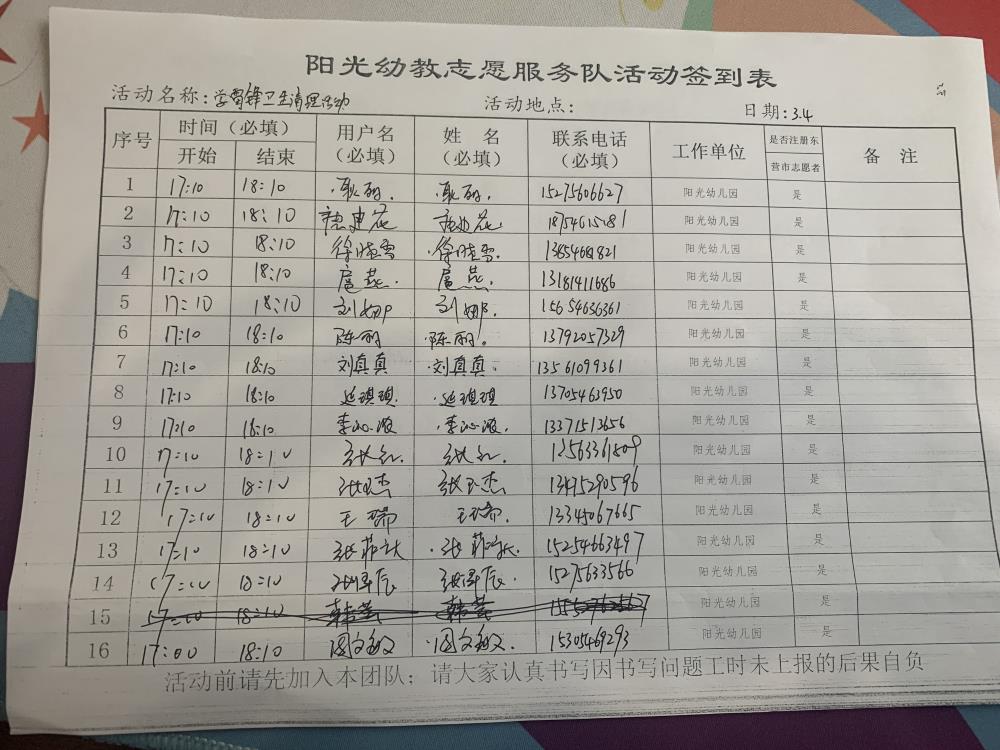 阳光幼教志愿服务队活动签到表
活动名称:学雷锋卫生清理活动 活动地点: 日期:3.4
序号 时间(必填) 用户名(必填) 姓 名(必填) 联系电话(必填) 工作单位 是否注册东营市志愿者 备 注
开始 结束
1 17:10 18:10 耿丽. 耿丽. 15275606627 阳光幼儿园 是
2 17:10 18:10 阳光幼儿园 是
3 17:10 18:10 徐晓雪 徐晓雪. 阳光幼儿园 是
4 17:10 18:10 扈燕. 扈燕. 13181411686 阳光幼儿园 是
5 17:10 18:10 刘娜 刘娜. 15654656361 阳光幼儿园 是
6 17:10 18:10 陈丽 陈丽. 13792057329 阳光幼儿园 是
7 17:10 18:10 刘真真 刘真真. 13561099361 阳光幼儿园 是
8 17:10 18:10 延琪琪. 延琪琪 13705463950 阳光幼儿园 是
9 17:10 18:10 李沁波 李沁波. 13371513656 阳光幼儿园 是
10 17:10 18:10 张红. 张红. 阳光幼儿园 是
11 17:10 18:10 张玉杰 张玉杰 13475290596 阳光幼儿园 是
12 17:10 18:10 王瑞 王瑞. 13345067665 阳光幼儿园 是
13 17:10 18:10 15254663497 阳光幼儿园 是
14 17:00 18:10 张泽辰 张泽辰. 15275633566 阳光幼儿园 是
15 17:00 18:10 韩芸 韩芸 阳光幼儿园 是
16 17:00 18:10 周文敏 周文敏 15305469293 阳光幼儿园 是
活动前请先加入本团队;请大家认真书写因书写问题工时未上报的后果自负